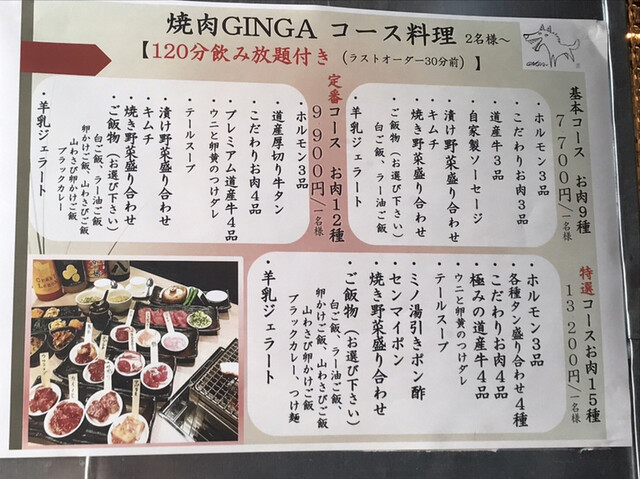 焼肉GINGA コース料理 2名様～
【120分飲み放題付き (ラストオーダー30分前) 】
基本コース お肉9種
7 700円/一名様
・ホルモン3品
・こだわりお肉3品
・道産牛3品
・自家製ソーセージ
・漬け野菜盛り合わせ
・キムチ
・焼き野菜盛り合わせ
・ご飯物(お選び下さい)
白ご飯、ラー油ご飯
・羊乳ジェラート
定番コース お肉12種
9 900円/一名様
・ホルモン3品
・道産厚切り牛タン
・こだわりお肉4品
・プレミアム道産牛4品
・ウニと卵黄のつけダレ
・テールスープ
・漬け野菜盛り合わせ
・キムチ
・焼き野菜盛り合わせ
・ご飯物(お選び下さい)
白ご飯、ラー油ご飯
卵かけご飯、山わさびご飯
山わさび卵かけご飯
ブラックカレー
・羊乳ジェラート
特選コースお肉15種
13 200円/一名様
・ホルモン3品
・各種タン盛り合わせ4種
・こだわりお肉4品
・極みの道産牛4品
・ウニと卵黄のつけダレ
・テールスープ
・ミノ湯引きポン酢
・センマイポン
・焼き野菜盛り合わせ
・ご飯物(お選び下さい)
白ご飯、ラー油ご飯、
卵かけご飯、山わさびご飯
山わさび卵かけご飯
ブラックカレー、つけ麺
・羊乳ジェラート